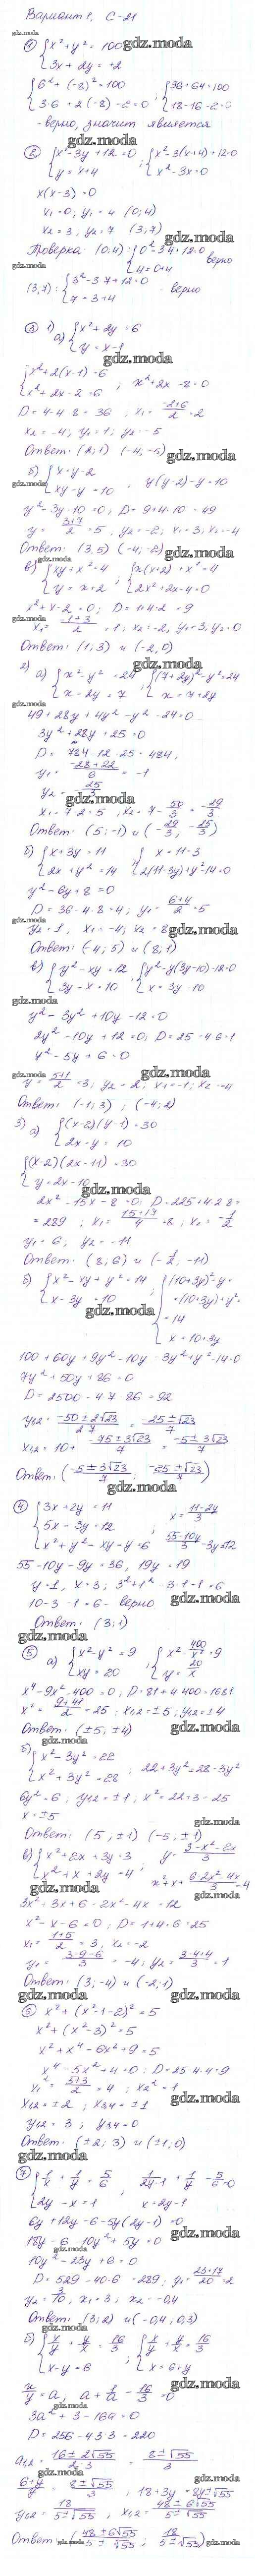 Вариант 1, С-21
① {x² + y² = 100
3x + 2y = 2
{6² + (-8)² = 100 {36 + 64 = 100
3·6 + 2(-8) - 2 = 0 ; 18 - 16 - 2 = 0
- верно, значит является
② {x² - 3y + 12 = 0 {x² - 3(x+4) + 12 = 0
y = x + 4 ; x² - 3x = 0
x(x-3) = 0
x₁ = 0, y₁ = 4 (0; 4)
x₂ = 3, y₂ = 7 (3; 7)
Проверка: (0; 4): {0² - 3·4 + 12 = 0 верно
4 = 0 + 4
(3; 7): {3² - 3·7 + 12 = 0 - верно
7 = 3 + 4
③ 1) а) {x² + 2y = 6
y = x - 1
{x² + 2(x-1) = 6
x² + 2x - 2 = 6 ; x² + 2x - 8 = 0
D = 4 + 4·8 = 36 ; x₁ = (-2+6)/2 = 2
x₂ = -4; y₁ = 1; y₂ = -5
Ответ: (2; 1) (-4; -5)
б) {x = y - 2
xy - y = 10 ; y(y-2) - y = 10
y² - 3y - 10 = 0; D = 9 + 4·10 = 49
y = (3+7)/2 = 5, y₂ = -2; x₁ = 3; x₂ = -4
Ответ: (3; 5) (-4; -2)
в) {xy + x² = 4 {x(x+2) + x² = 4
y = x + 2 ; 2x² + 2x - 4 = 0
x² + x - 2 = 0; D = 1 + 4·2 = 9
x₁ = (-1+3)/2 = 1; x₂ = -2, y₁ = 3; y₂ = 0
Ответ: (1; 3) и (-2; 0)
2) а) {x² - y² = 24 {(7+2y)² - y² = 24
x - 2y = 7 ; x = 7 + 2y
49 + 28y + 4y² - y² - 24 = 0
3y² + 28y + 25 = 0
D = 784 - 12·25 = 484;
y₁ = (-28+22)/6 = -1
y₂ = -25/3
x₁ = 7 - 2 = 5, x₂ = 7 - 50/3 = -29/3
Ответ: (5; -1) и (-29/3; -25/3)
б) {x + 3y = 11 {x = 11 - 3
2x + y² = 14 2(11-3y) + y² - 14 = 0
y² - 6y + 8 = 0
D = 36 - 4·8 = 4; y₁ = (6+4)/2 = 5
y₂ = 1, x₁ = -4; x₂ = 8
Ответ: (-4; 5) и (8; 1)
в) {y² - xy = 12 {y² - y(3y-10) - 12 = 0
3y - x = 10 x = 3y - 10
y² - 3y² + 10y - 12 = 0
2y² - 10y + 12 = 0; D = 25 - 4·6 = 1
y² - 5y + 6 = 0
y = (5+1)/2 = 3; y₂ = 2; x₁ = -1; x₂ = -4
Ответ: (-1; 3) ; (-4; 2)
3) а) {(x-2)(y-1) = 30
2x - y = 10
{(x-2)(2x-11) = 30
y = 2x - 10
2x² - 15x - 8 = 0; D = 225 + 4·2·8 =
= 289 ; x₁ = (15+17)/4 = 8 ; x₂ = -1/2
y₁ = 6; y₂ = -11
Ответ: (8; 6) и (-1/2; -11)
б) {x² - xy + y² = 14 {(10+3y)² - y·
x - 3y = 10 ·(10+3y) + y² =
= 14
x = 10 + 3y
100 + 60y + 9y² - 10y - 3y² + y² - 14 = 0
7y² + 50y + 86 = 0
D = 2500 - 4·7·86 = 92
y₁,₂ = (-50 ± 2√23)/2·7 = (-25 ± √23)/7
x₁,₂ = 10 + (-75 ± 3√23)/7 = (-5 ± 3√23)/7
Ответ: ((-5 ± 3√23)/7 ; (-25 ± √23)/7)
④ {3x + 2y = 11 x = (11-2y)/3
5x - 3y = 12 ;
x² + y² - xy - y = 6 (55-10y)/3 - 3y = 12
55 - 10y - 9y = 36, 19y = 19
y = 1, x = 3; 3² + 1² - 3·1 - 1 = 6
10 - 3 - 1 = 6 - верно
Ответ: (3; 1)
⑤ а) {x² - y² = 9 {x² - 400/x² = 9
xy = 20 ; y = 20/x
x⁴ - 9x² - 400 = 0; D = 81 + 4·400 = 1681
x² = (9+41)/2 = 25; x₁,₂ = ±5; y₁,₂ = ±4
Ответы: (±5; ±4)
б) {x² - 3y² = 22
x² + 3y² = 28 ; 22 + 3y² = 28 - 3y²
6y² = 6; y₁,₂ = ±1, x² = 22 + 3 = 25
x = ±5
Ответы: (5; ±1) (-5; ±1)
в) {x² + 2x + 3y = 3 y = (3-x²-2x)/3
x² + x + 2y = 4 ; x² + x + (6-2x²-4x)/3 = 4
3x² + 3x + 6 - 2x² - 4x = 12
x² - x - 6 = 0; D = 1 + 4·6 = 25
x₁ = (1+5)/2 = 3, x₂ = -2
y₁ = (3-9-6)/3 = -4; y₂ = (3-4+4)/3 = 1
Ответы: (3; -4) и (-2; 1)
⑥ x² + (x² - 1 - 2)² = 5
x² + (x² - 3)² = 5
x² + x⁴ - 6x² + 9 = 5
x⁴ - 5x² + 4 = 0; D = 25 - 4·4 = 9
x₁² = (5+3)/2 = 4; x₂² = 1
x₁,₂ = ±2; x₃,₄ = ±1
y₁,₂ = 3; y₃,₄ = 0
Ответ: (±2; 3) и (±1; 0)
⑦ {1/x + 1/y = 5/6 ; 1/(2y-1) + 1/y - 5/6 = 0
2y - x = 1 x = 2y - 1
6y + 12y - 6 - 5y(2y-1) = 0
18y - 6 - 10y² + 5y = 0
10y² - 23y + 6 = 0
D = 529 - 40·6 = 289; y₁ = (23+17)/20 = 2
y₂ = 3/10, x₁ = 3; x₂ = -0,4
Ответы: (3; 2) и (-0,4; 0,3)
б) {x/y + y/x = 16/3 {x/y + y/x = 16/3
x - y = 6 ; x = 6 + y
x/y = a, a + 1/a - 16/3 = 0
3a² + 3 - 16a = 0
D = 256 - 4·3·3 = 220
a₁,₂ = (16 ± 2√55)/2·3 = (8 ± √55)/3
(6+y)/y = (8 ± √55)/3 ; 18 + 3y = 8y ± √55y
y₁,₂ = 18/(5 ± √55), x₁,₂ = (48 ± 6√55)/(5 ± √55)
Ответ: ((48 ± 6√55)/(5 ± √55) ; 18/(5 ± √55))
gdz.moda